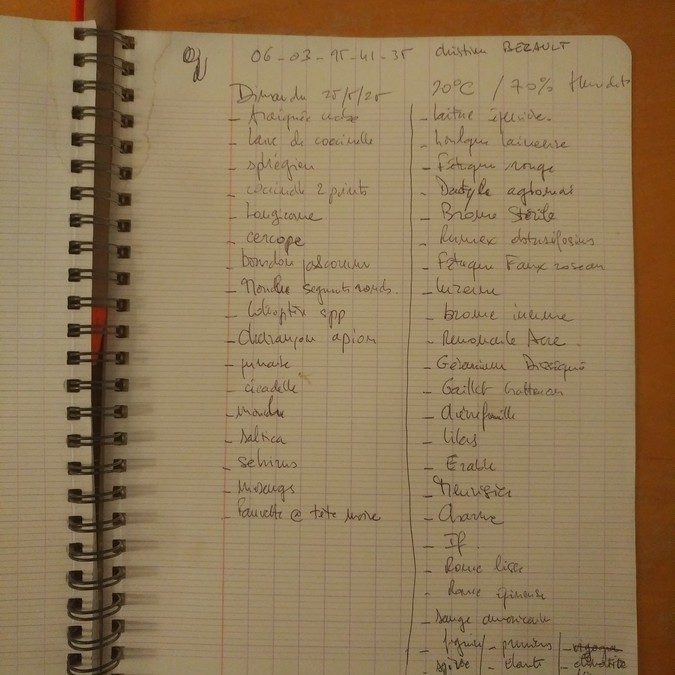 06-03-95-41-35 Christian BEZAULT
Dimanche 25/5/25
20°C / 70% Humidité
- Araignée
- Larve de coccinelle
- coccinelle 2 points
- Longicorne
- cercope
- bourdon
- Mouche segments
- Coléoptère spp
- Charançon apion
- punaise
- cicadelle
- mouche
- saltica
- sehirus
- mésange
- Fauvette @ tête noire
- Laitue épineuse
- houlque laineuse
- Fétuque rouge
- Dactyle aggloméré
- Brome Stérile
- Rumex obtusifolius
- Fétuque Faux roseau
- luzerne
- brome inerme
- Renoncule Acre
- Géranium Disséqué
- Gaillet Gratteron
- chèvrefeuille
- lilas
- Erable
- Merisier
- Charme
- If
- Ronce lisse
- Ronce épineuse
- sauge
- figuier / - pruniers /